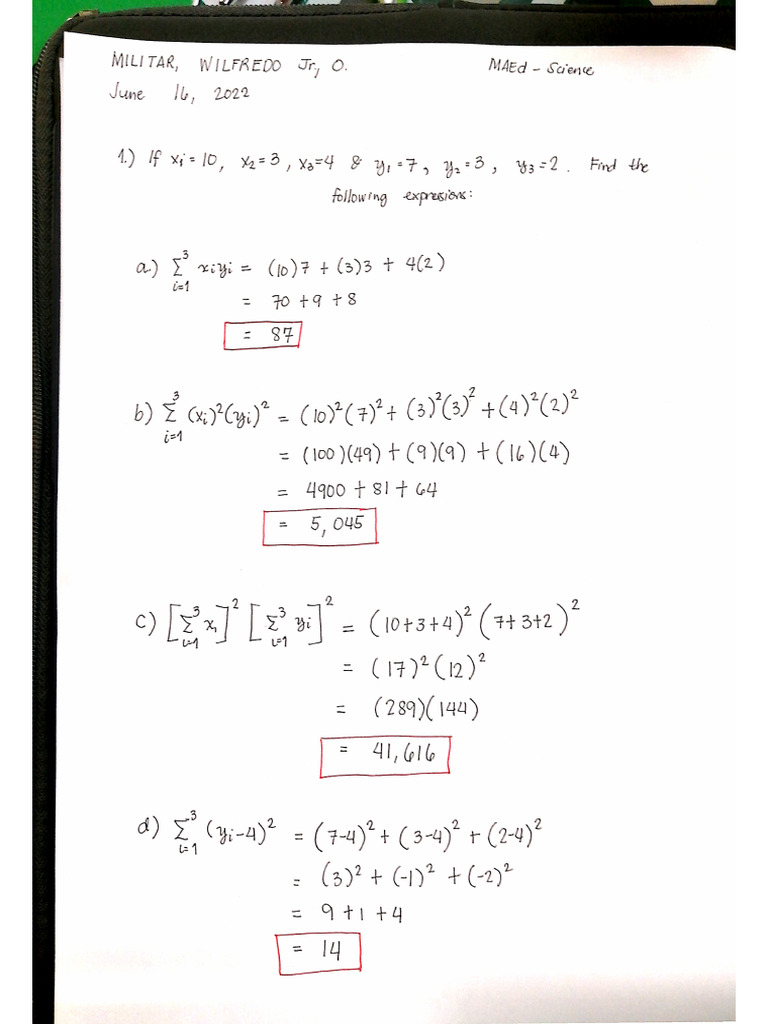 MILITAR, WILFREDO Jr, O. MAEd - Science
June 16, 2022
1.) If x₁ = 10, x₂ = 3, x₃ = 4 & y₁ = 7, y₂ = 3, y₃ = 2. Find the
following expressions:
a.) Σ³ᵢ₌₁ xᵢyᵢ = (10)7 + (3)3 + 4(2)
= 70 + 9 + 8
= 87
b) Σ³ᵢ₌₁ (xᵢ)²(yᵢ)² = (10)²(7)² + (3)²(3)² + (4)²(2)²
= (100)(49) + (9)(9) + (16)(4)
= 4900 + 81 + 64
= 5,045
c) [Σ³ᵢ₌₁ xᵢ]² [Σ³ᵢ₌₁ yᵢ]² = (10+3+4)² (7+3+2)²
= (17)² (12)²
= (289)(144)
= 41,616
d) Σ³ᵢ₌₁ (yᵢ-4)² = (7-4)² + (3-4)² + (2-4)²
= (3)² + (-1)² + (-2)²
= 9 + 1 + 4
= 14